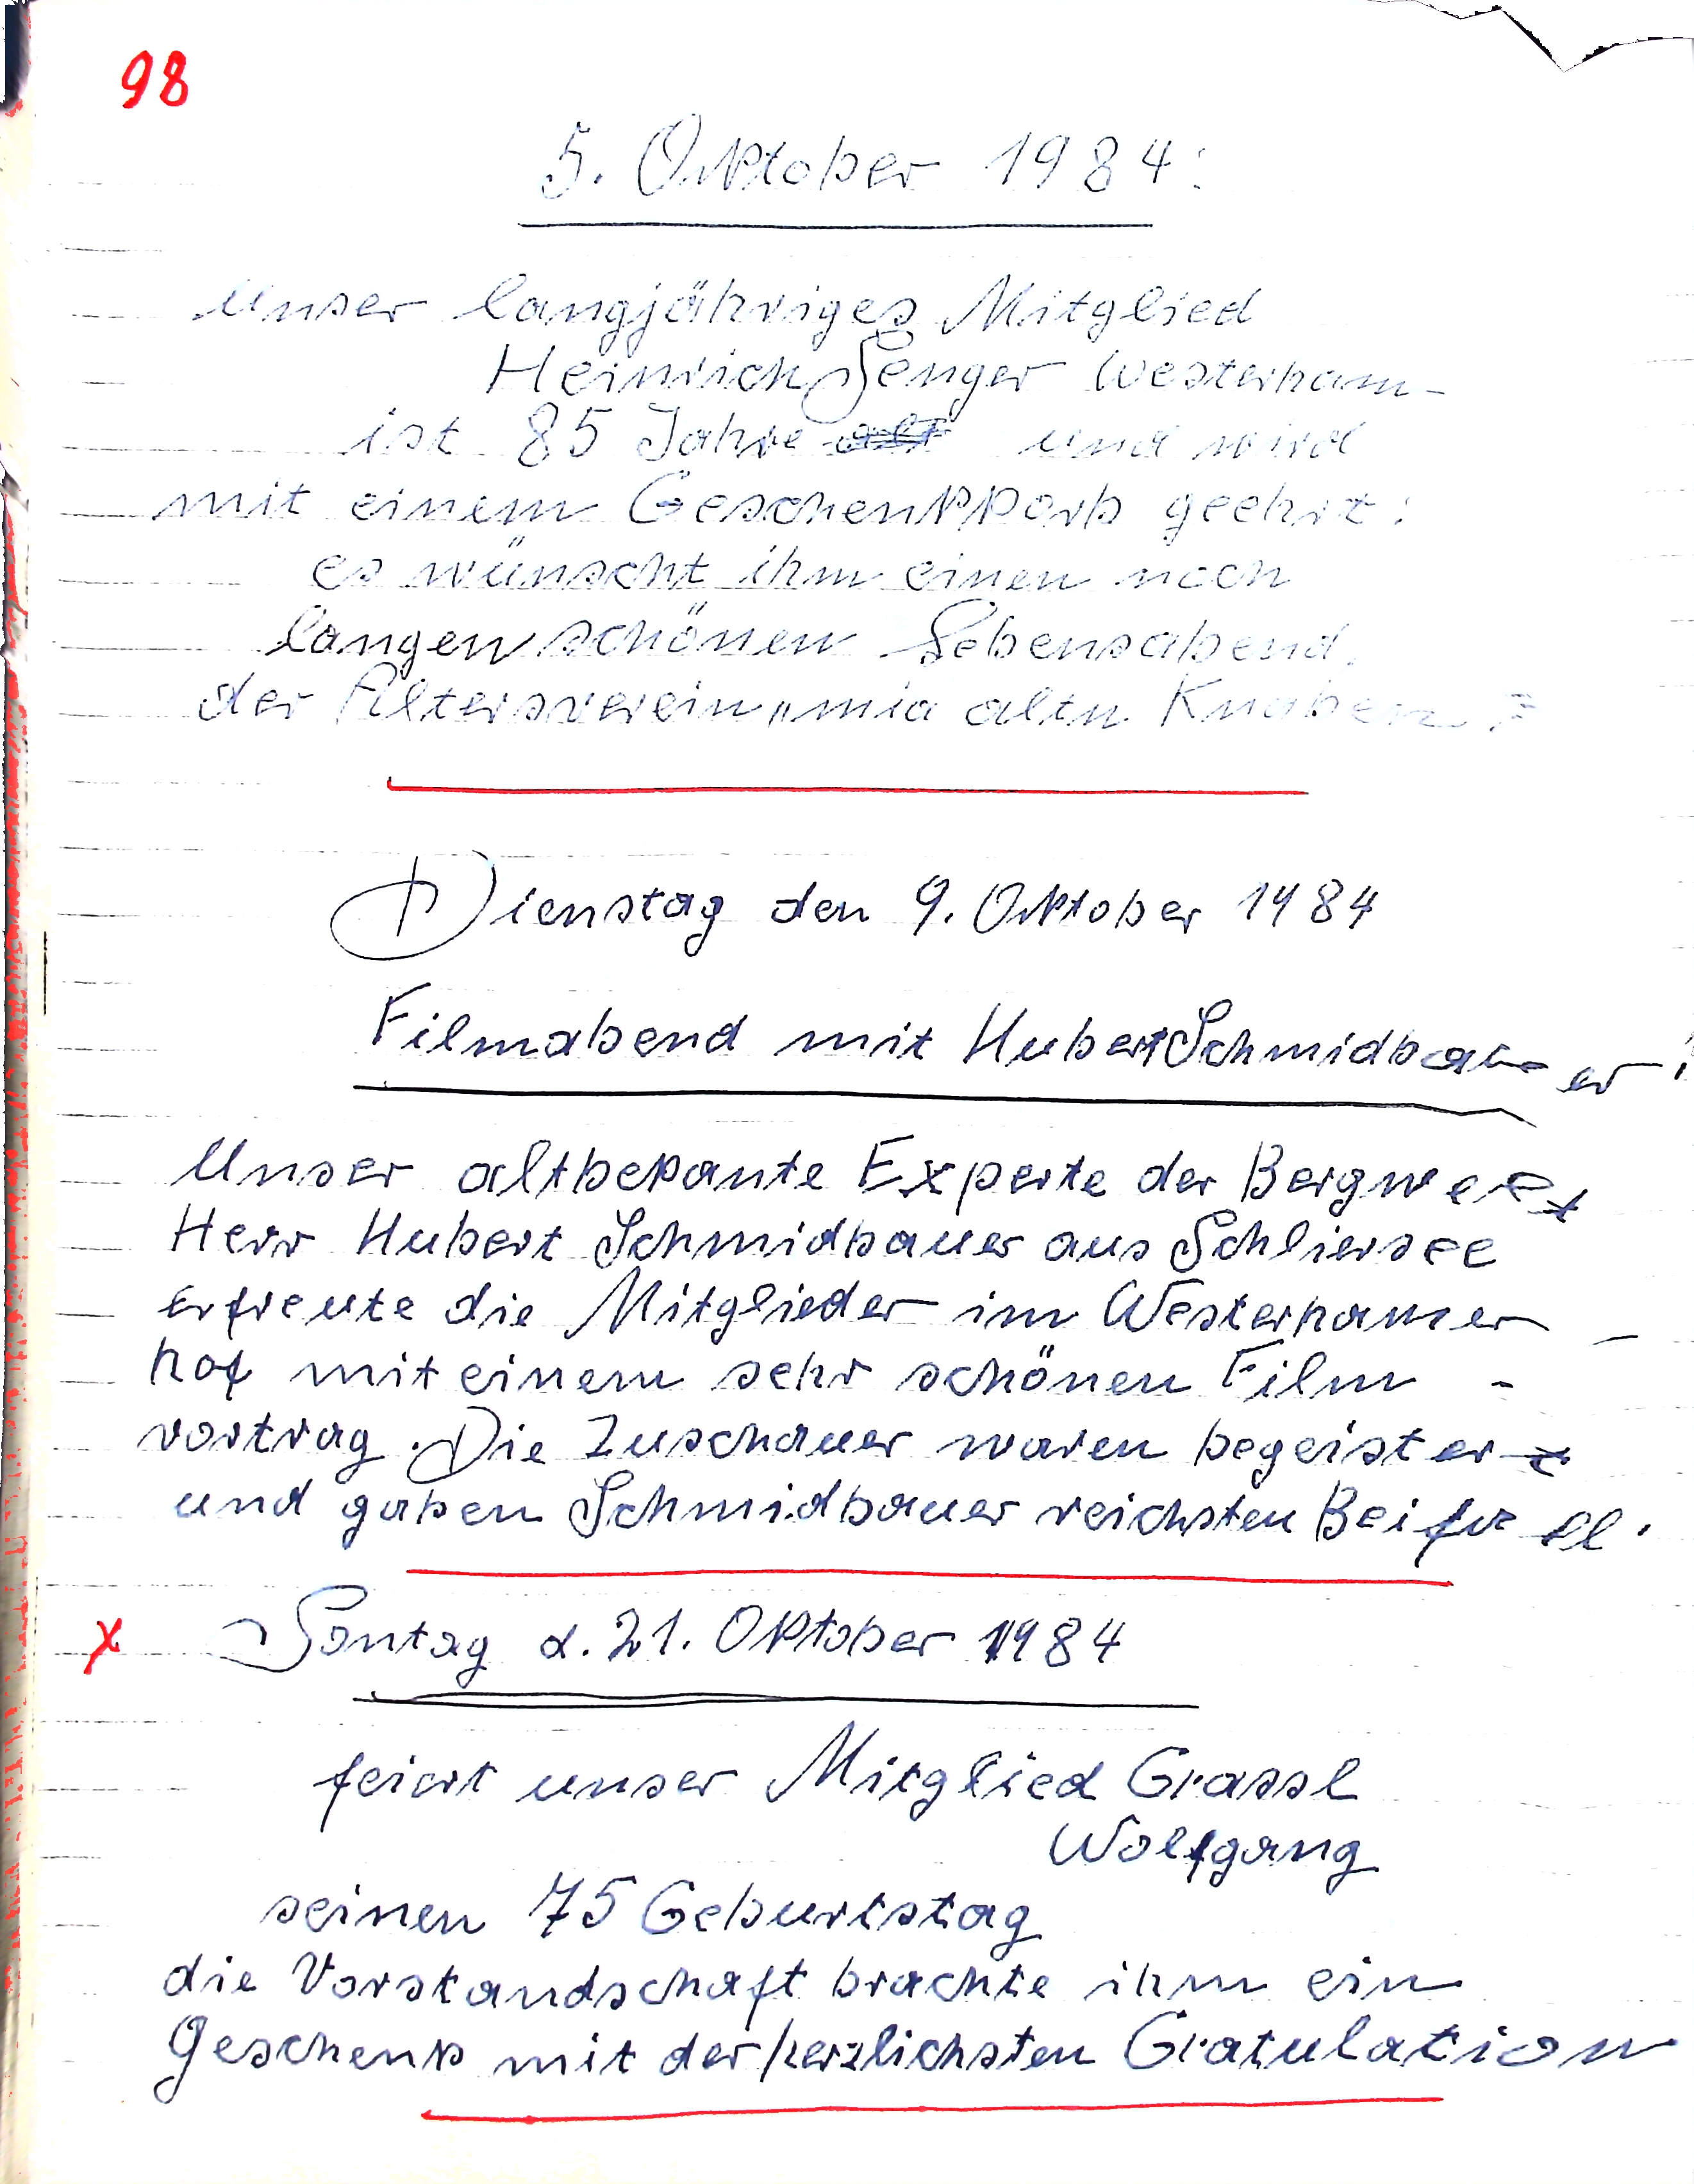 98
5. Oktober 1984:
Unser langjähriges Mitglied
Heinrich Senger Westerham-
ist 85 Jahre und wird
mit einem Geschenkkorb geehrt:
es wünscht ihm einen noch
langen schönen Lebensabend,
der Altersverein „mia altn Knaben"
Dienstag den 9. Oktober 1984
Filmabend mit Hubert Schmidbauer!
Unser altbekante Experte der Bergwelt
Herr Hubert Schmidbauer aus Schliersee
erfreute die Mitglieder im Westerhamer-
hof mit einem sehr schönen Film-
vortrag. Die Zuschauer waren begeistert
und gaben Schmidbauer reichsten Beifall.
x Sontag d. 21. Oktober 1984
feiert unser Mitglied Grassl
Wolfgang
seinen 75 Geburtstag
die Vorstandschaft brachte ihm ein
Geschenk mit der herzlichsten Gratulation